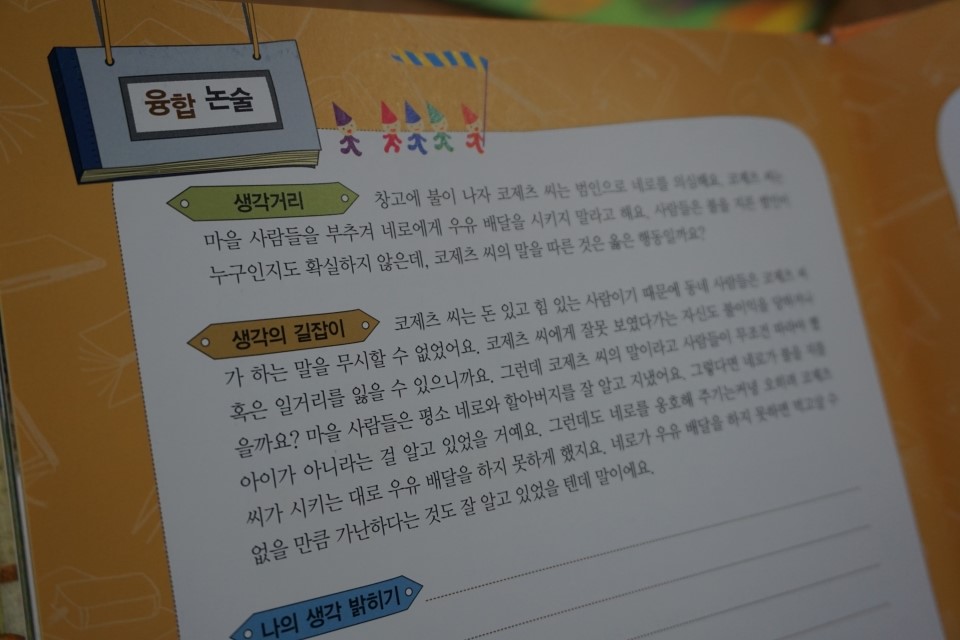 융합 논술
생각거리 창고에 불이 나자 코제츠 씨는 범인으로 네로를 의심해요. 코제츠 씨는
마을 사람들을 부추겨 네로에게 우유 배달을 시키지 말라고 해요. 사람들은 불을 지른 범인이
누구인지도 확실하지 않은데, 코제츠 씨의 말을 따른 것은 옳은 행동일까요?
생각의 길잡이 코제츠 씨는 돈 있고 힘 있는 사람이기 때문에 동네 사람들은 코제츠 씨
가 하는 말을 무시할 수 없었어요. 코제츠 씨에게 잘못 보였다가는 자신도 불이익을 당하거나
혹은 일거리를 잃을 수 있으니까요. 그런데 코제츠 씨의 말이라고 사람들이 무조건 따라야 했
을까요? 마을 사람들은 평소 네로와 할아버지를 잘 알고 지냈어요. 그렇다면 네로가 불을 지를
아이가 아니라는 걸 알고 있었을 거예요. 그런데도 네로를 옹호해 주기는커녕 오히려 코제츠
씨가 시키는 대로 우유 배달을 하지 못하게 했지요. 네로가 우유 배달을 하지 못하면 먹고살 수
없을 만큼 가난하다는 것도 잘 알고 있었을 텐데 말이에요.
나의 생각 밝히기